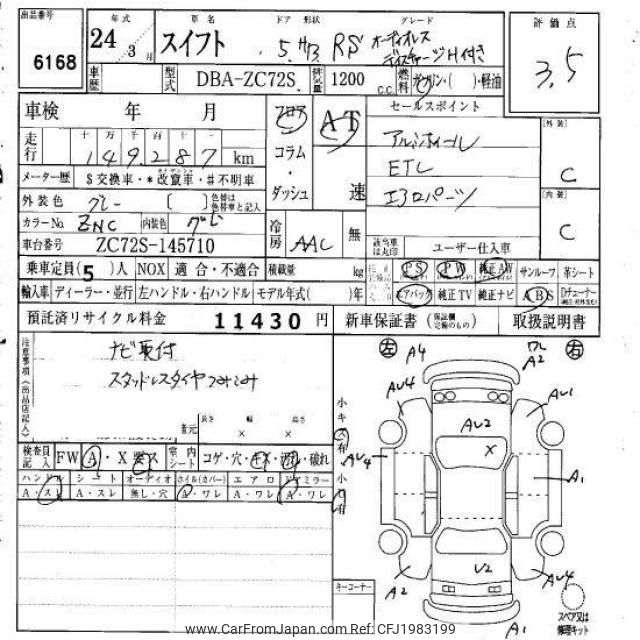 出品番号 6168
年式 24 3月
車名 スイフト
ドア 形状 5 H/B
グレード RS オーディオレス ディスチャージH付き
評価点 3.5
車歴
型式 DBA-ZC72S
排気量 1200 C.C.
燃料 ガソリン・( )・軽油
車検 年 月
コラム・ダッシュ
AT 速
セールスポイント
アルミホイール
ETC
エアロパーツ
走行 十 万 千 百 十 一
149287 km
メーター歴 $交換車・*改竄車・#不明車
外装色 グレー ( ) 色替は色替車と記入
カラーNo. ZNC 内装色 グレー
車台番号 ZC72S-145710
冷房 AAC 無
該当車は丸印 ユーザー仕入車
[外装] C
[内装] C
乗車定員(5)人 NOX 適合・不適合 積載量 kg
PS PW 純正AW サンルーフ 革シート
輸入車 ディーラー・並行 左ハンドル・右ハンドル モデル年式( )年
エアバック 純正TV 純正ナビ ABS
預託済リサイクル料金 11430 円
新車保証書 取扱説明書
注意事項(出品店記入)
ナビ取付
スタッドレスタイヤつみこみ
長さ 幅 高さ
× ×
検査員記入 FW A・X
室内シート コゲ・穴・キズ・汚れ・破れ
ハンドル シート オーディオ ホイル(カバー) エアロ ドアミラー
A・スレ A・スレ 無し・穴 A・ワレ A・ワレ A・ワレ
左 右
A4
ワレ A2
AV4 AV1
AV2
X
AV4 A1
A2 V2 AV4
A1
小キズ有
キーコーナー
スペア又は修理キット
www.CarFromJapan.com Ref: CFJ1983199